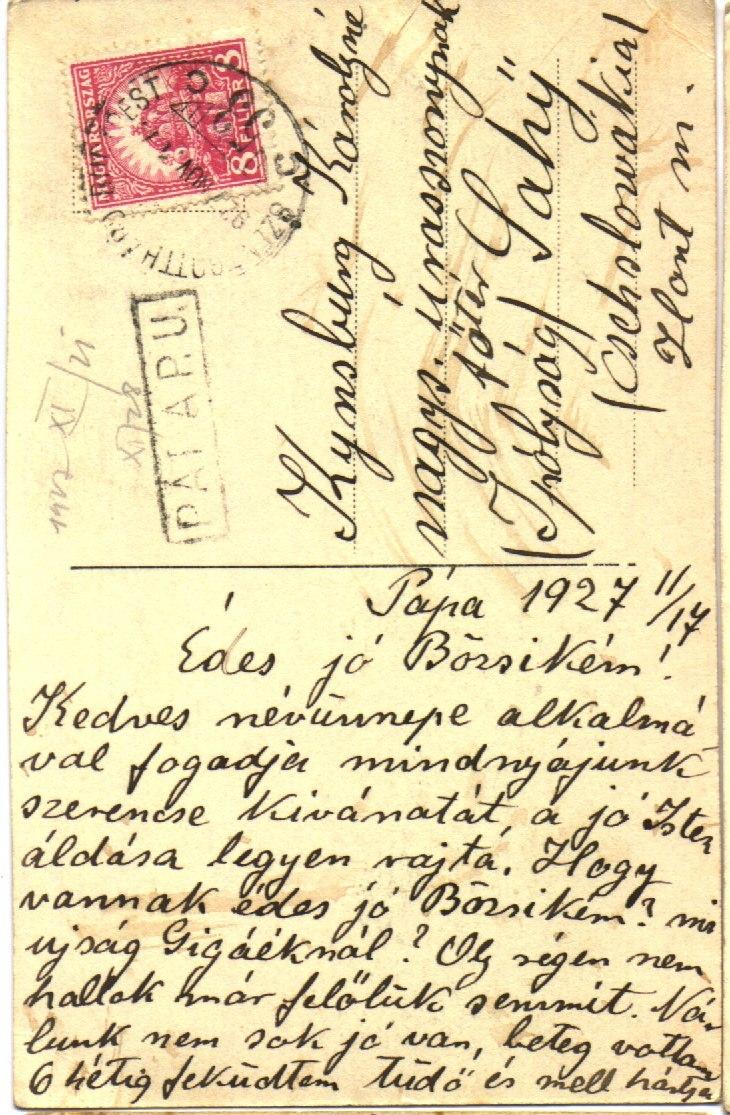 MAGYARORSZÁG
8 FILLÉR 8
PÁLAPU
Kynsburg Károlyné
nagys. urasszonynak
főtér Sahy
(Ipolyság)
(Csehslowakia)
Hont m.
Pápa 1927 11/17
Édes jó Bözsikém!
Kedves névünnepe alkalmá
val fogadja mindnyájunk
szerencse kivánatát, a jó Isten
áldása legyen rajta. Hogy
vannak édes jó Bözsikém? mi
ujság Gigáéknál? Oly régen nem
hallok már felőlük semmit. Ná-
lunk nem sok jó van, beteg voltam
6 hétig feküdtem tüdő és mell hártya